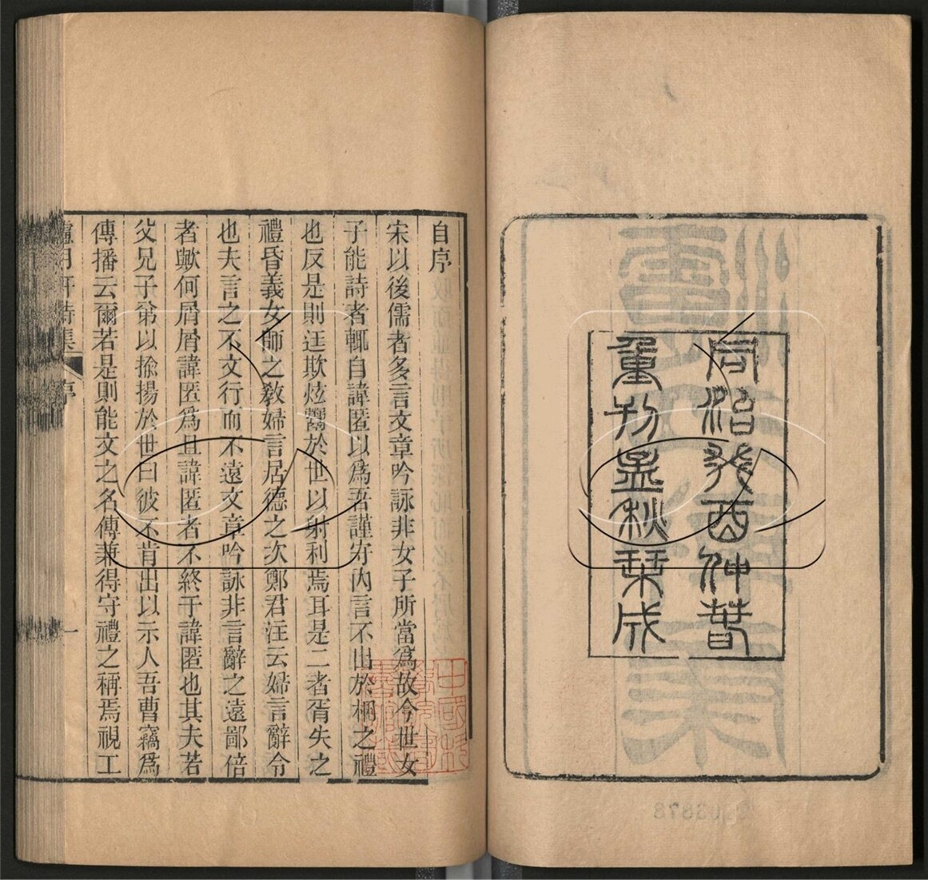 同治癸酉仲春
重刊孟秋栞成
自序
宋以後儒者多言文章吟詠非女子所當爲故今世女
子能詩者輒自諱匿以爲吾謹守內言不出於梱之禮
也反是則迋欺炫鬻於世以射利焉耳是二者胥失之
禮昏義女師之敎婦言居德之次鄭君注云婦言辭令
也夫言之不文行而不遠文章吟詠非言辭之遠鄙倍
者歟何屑屑諱匿爲且諱匿者不終于諱匿也其夫若
父兄子弟以揄揚於世曰彼不肯出以示人吾曹竊爲
傳播云爾若是則能文之名傳兼得守禮之稱焉視工
月軒詩集 序 一